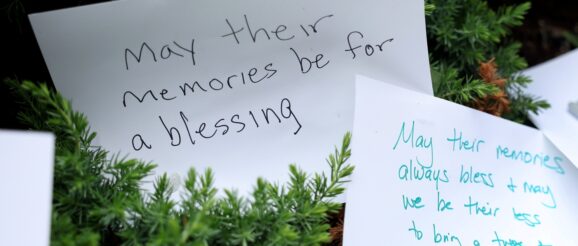 May their
memories be for
a blessing
May their memories
always bless & may
we be their
to bring a